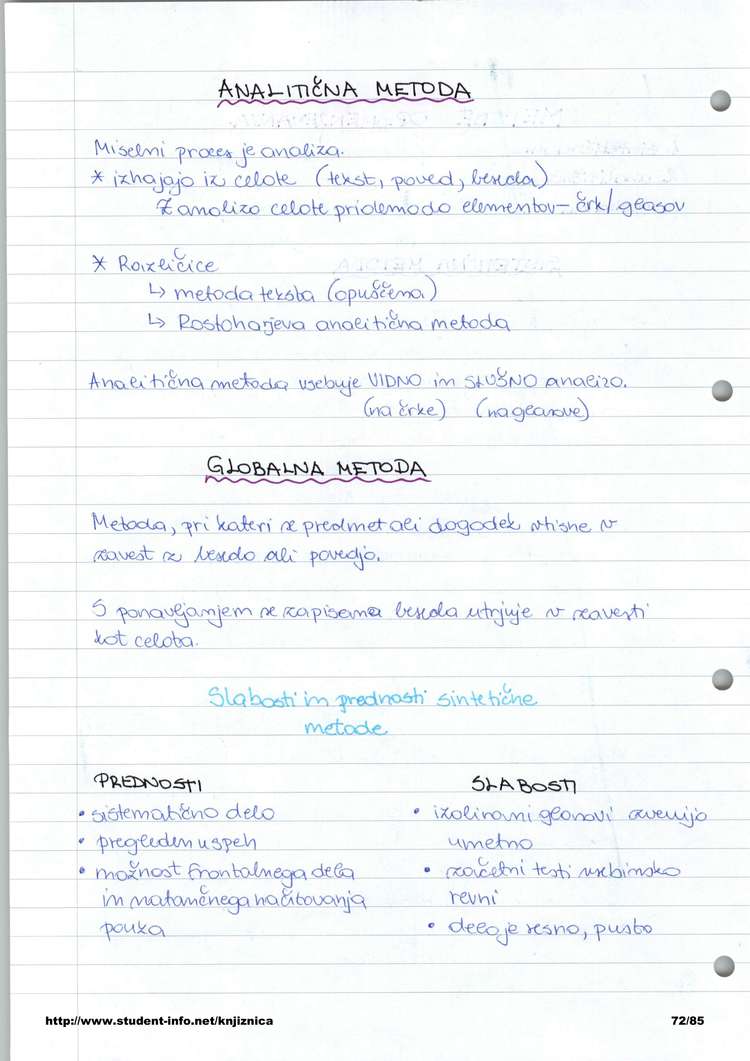 ANALITIČNA METODA
Miselni proces je analiza.
* izhajajo iz celote (tekst, poved, beseda)
Z analizo celote pridemo do elementov – črk/glasov
* Različice
↳ metoda teksta (opuščena)
↳ Rostoharjeva analitična metoda
Analitična metoda vsebuje VIDNO in SLUŠNO analizo.
(na črke) (na glasove)
GLOBALNA METODA
Metoda, pri kateri se predmet ali dogodek vtisne v
zavest z besedo ali povedjo.
S ponavljanjem se zapisana beseda utrjuje v zavesti
kot celota.
Slabosti in prednosti sintetične
metode
PREDNOSTI
• sistematično delo
• pregleden uspeh
• možnost frontalnega dela
in natančnega načrtovanja
pouka
SLABOSTI
• izolirani glasovi zvenijo
umetno
• začetni testi vsebinsko
revni
• delo je resno, pusto
http://www.student-info.net/knjiznica 72/85